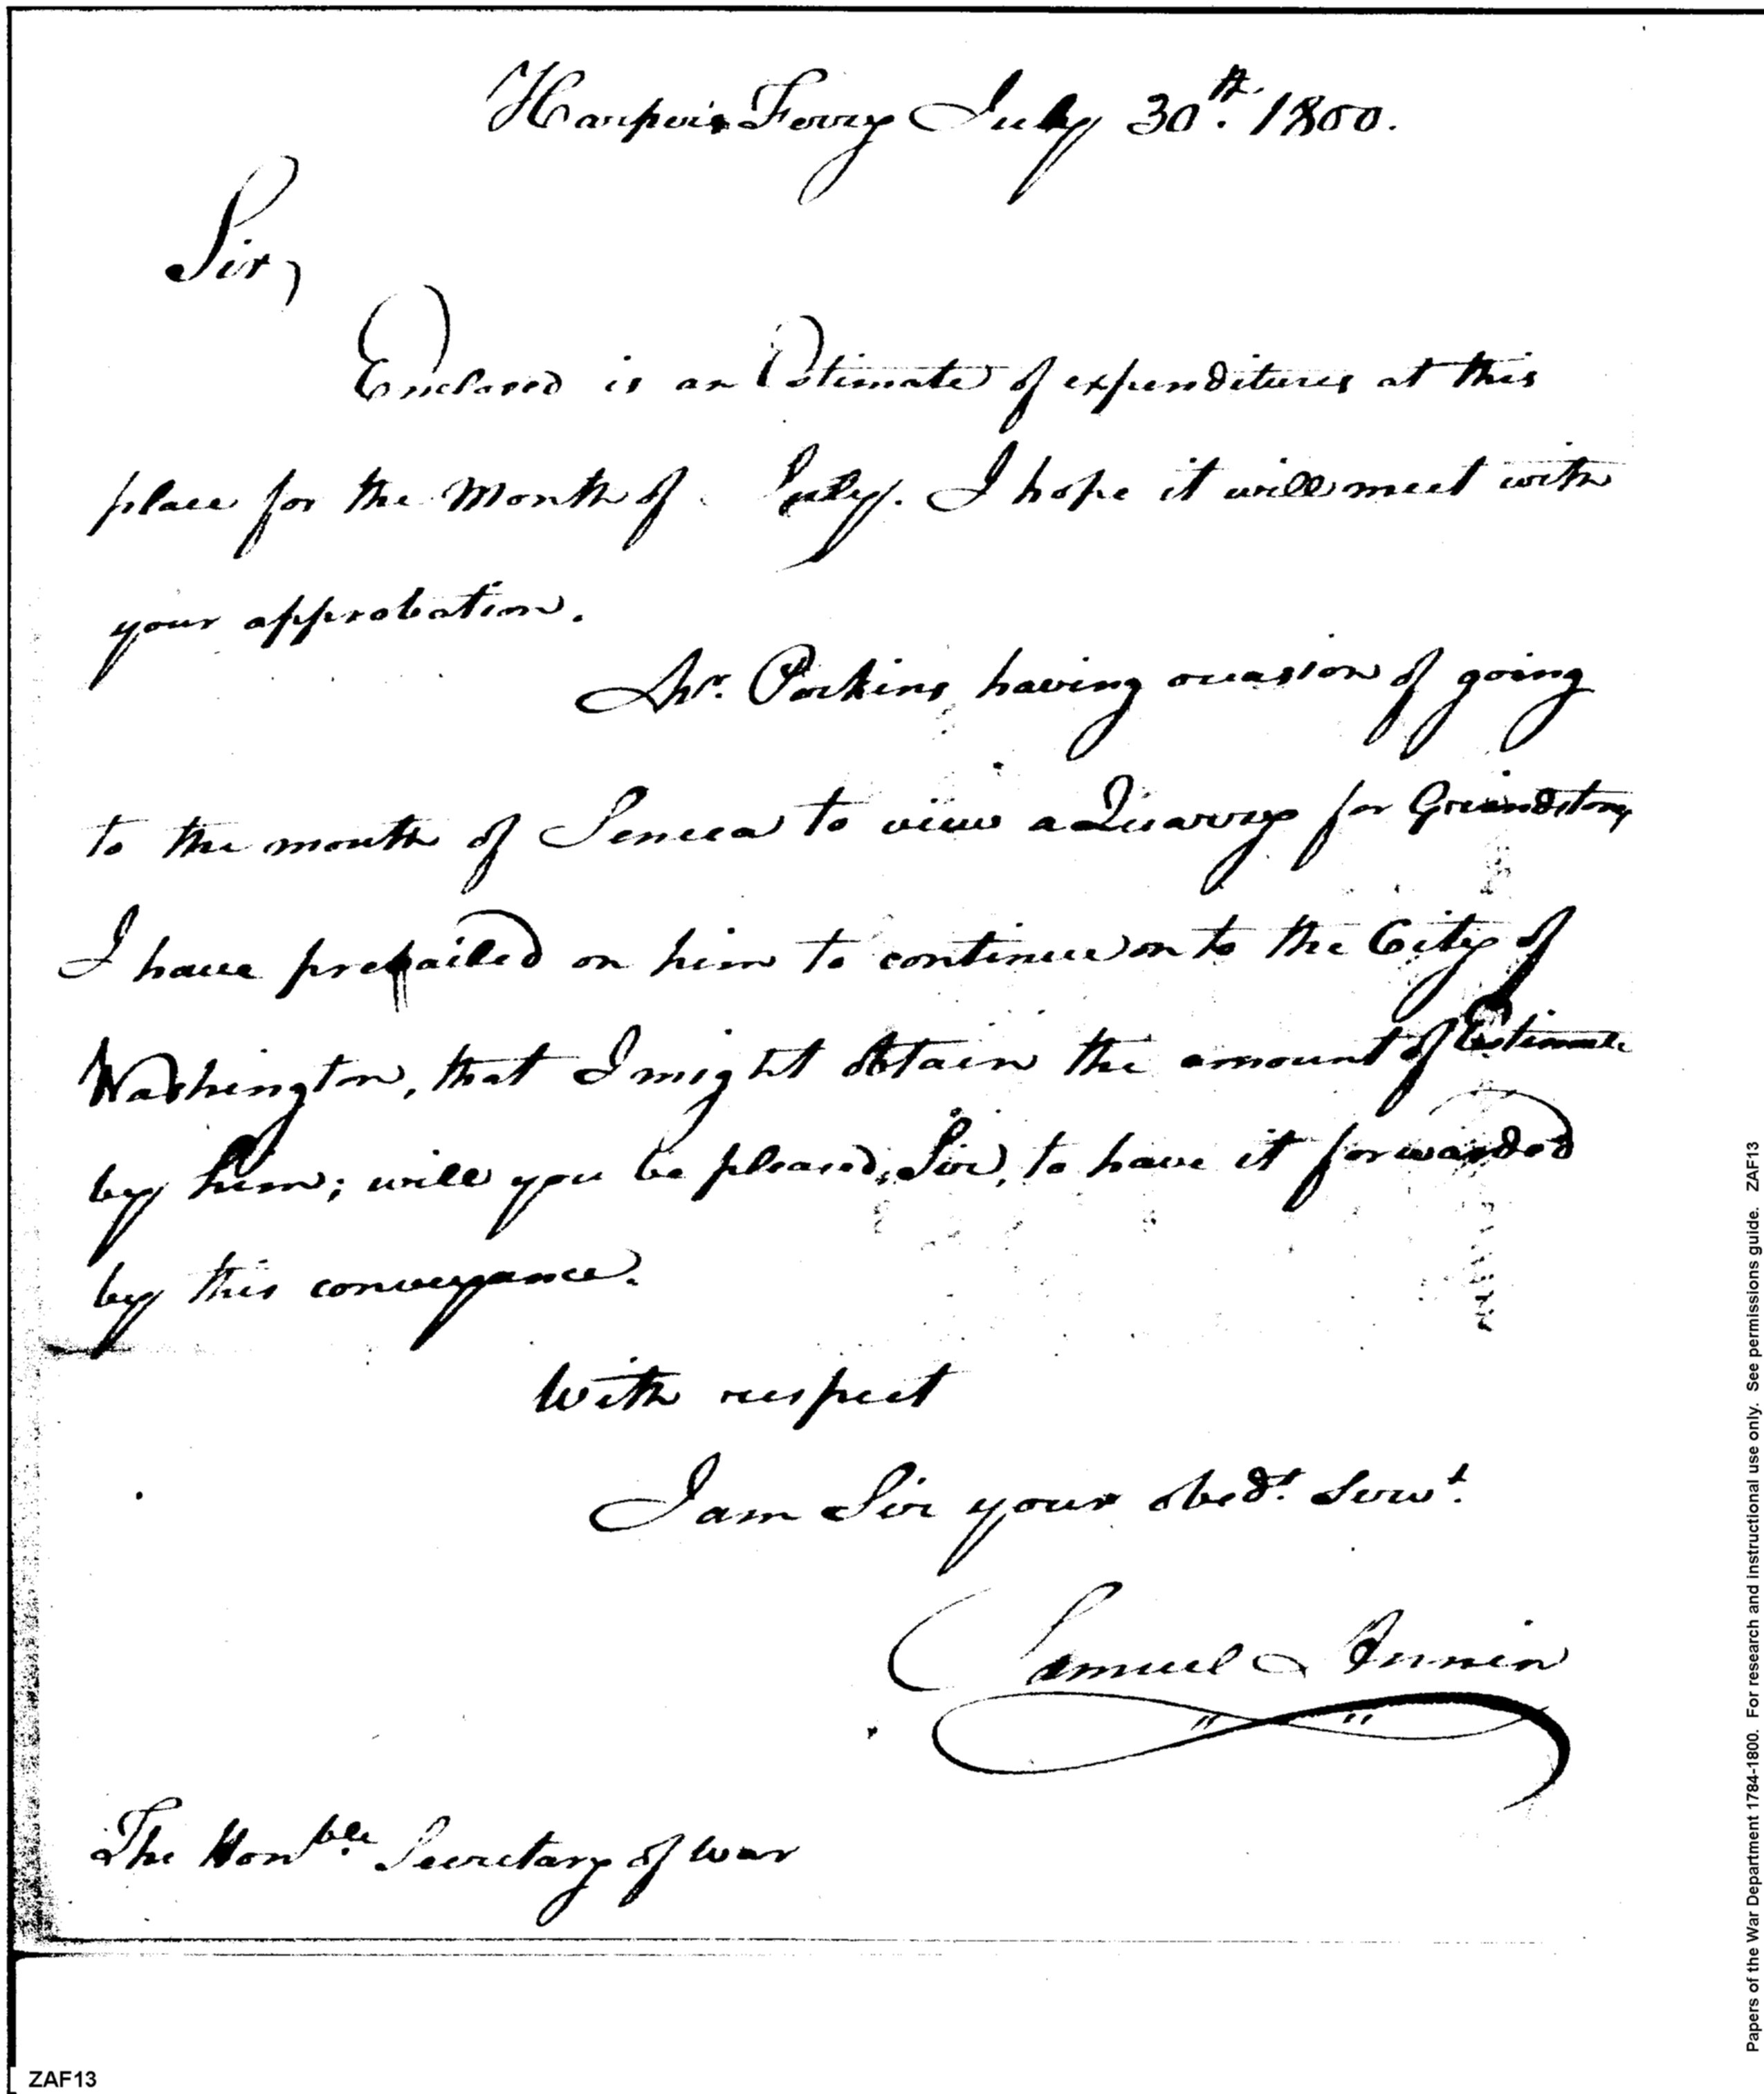 Harper's Ferry July 30th. 1800.
Sir,
Enclosed is an Estimate of expenditures at this
place for the Month of July. I hope it will meet with
your approbation.
Mr. Perkins, having occasion of going
to the mouth of Seneca to view a Quarry for Grindstones,
I have prevailed on him to continue on to the City of
Washington, that I might obtain the amount of Estimate
by him; will you be pleased, Sir, to have it forwarded
by this conveyance.
With respect
I am Sir your obedt. Servt.
Samuel Annin
The Honble. Secretary of War
ZAF13
Papers of the War Department 1784-1800. For research and instructional use only. See permissions guide. ZAF13